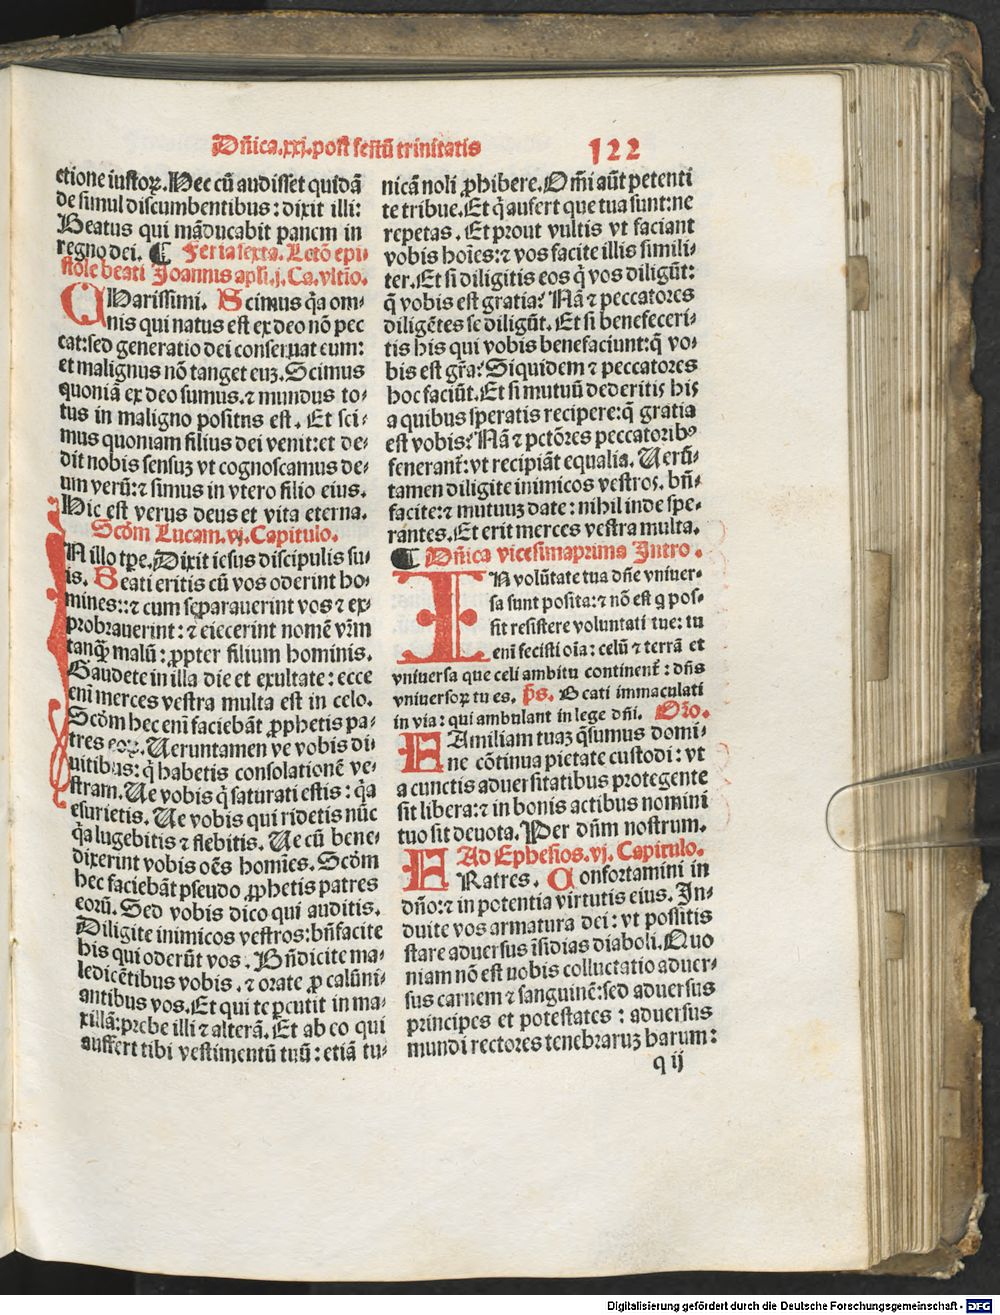 Dñica.xxj.post festū trinitatis 122
etione iustoꝝ. Hec cū audisset quidā
de simul discumbentibus: dixit illi:
Beatus qui māducabit panem in
regno dei. ¶ Feria sexta. Lectō epi
stole beati Joannis apl̄i.j. Ca. vltīo.
CHarissimi. Scimus q̄a om-
nis qui natus est ex deo nō pec
cat: sed generatio dei conseruat eum:
et malignus nō tanget euꝫ. Scimus
quoniā ex deo sumus. ⁊ mundus to-
tus in maligno positus est. Et sci-
mus quoniam filius dei venit: et de-
dit nobis sensuꝫ vt cognoscamus de-
um verū: ⁊ simus in vtero filio eius.
Hic est verus deus et vita eterna.
Scḋm Lucam. vj. Capitulo.
IN illo tꝑe. Dixit iesus discipulis su-
is. Beati eritis cū vos oderint ho-
mines:: ⁊ cum separauerint vos ⁊ ex-
probrauerint: ⁊ eiecerint nomē vr̄m
tanqꝫ malū: ꝓpter filium hominis.
Gaudete in illa die et exultate: ecce
eni merces vestra multa est in celo.
Scḋm hec eni faciebāt ꝓphetis pa-
tres eoꝝ. Ueruntamen ve vobis di-
uitibus: q̄ habetis consolationē ve-
stram. Ue vobis q̄ saturati estis: q̄a
esurietis. Ue vobis qui ridetis nūc
q̄a lugebitis ⁊ flebitis. Ue cū bene-
dixerint vobis oēs homīes. Scḋm
hec faciebāt pseudo ꝓphetis patres
eorū. Sed vobis dico qui auditis.
Diligite inimicos vestros: bn̄facite
his qui oderūt vos. Bn̄dicite ma-
ledicētibus vobis. ⁊ orate ꝓ calūni-
antibus vos. Et qui te ꝑcutit in ma-
xillā: prebe illi ⁊ alterā. Et ab eo qui
auffert tibi vestimentū tuū: etiā tu-
nicā noli ꝓhibere. Om̄i aūt petenti
te tribue. Et q̄ aufert que tua sunt: ne
repetas. Et prout vultis vt faciant
vobis hoīes: ⁊ vos facite illis simili-
ter. Et si diligitis eos q̄ vos diligūt:
q̄ vobis est gratia? Nā ⁊ peccatores
diligētes se diligūt. Et si benefeceri-
tis his qui vobis benefaciunt: q̄ vo-
bis est gr̄a? Siquidem ⁊ peccatores
hoc faciūt. Et si mutuū dederitis his
a quibus speratis recipere: q̄ gratia
est vobis? Nā ⁊ pctōres peccatoribꝰ
fenerant̄: vt recipiāt equalia. Uerū-
tamen diligite inimicos vestros. bn̄-
facite: ⁊ mutuuꝫ date: nihil inde spe-
rantes. Et erit merces vestra multa.
¶ Dñica vicesimaprima Intro.
IN volūtate tua dn̄e vniuer-
sa sunt posita: ⁊ nō est q pos-
sit resistere voluntati tue: tu
eni fecisti oīa: celū ⁊ terrā et
vniuersa que celi ambitu continent̄: dn̄s
vniuersoꝝ tu es. p̄s. Beati immaculati
in via: qui ambulant in lege dn̄i. Orō.
FAmiliam tuaꝫ q̄sumus domi-
ne cōtinua pietate custodi: vt
a cunctis aduersitatibus protegente
sit libera: ⁊ in bonis actibus nomini
tuo sit deuota. Per dn̄m nostrum.
Ad Ephesios. vj. Capitulo.
FRatres. Confortamini in
dn̄o: ⁊ in potentia virtutis eius. In-
duite vos armatura dei: vt possitis
stare aduersus īsidias diaboli. Quo
niam nō est nobis colluctatio aduer-
sus carnem ⁊ sanguinē: sed aduersus
principes et potestates: aduersus
mundi rectores tenebraruꝫ harum:
q ij
Digitalisierung gefördert durch die Deutsche Forschungsgemeinschaft - DFG